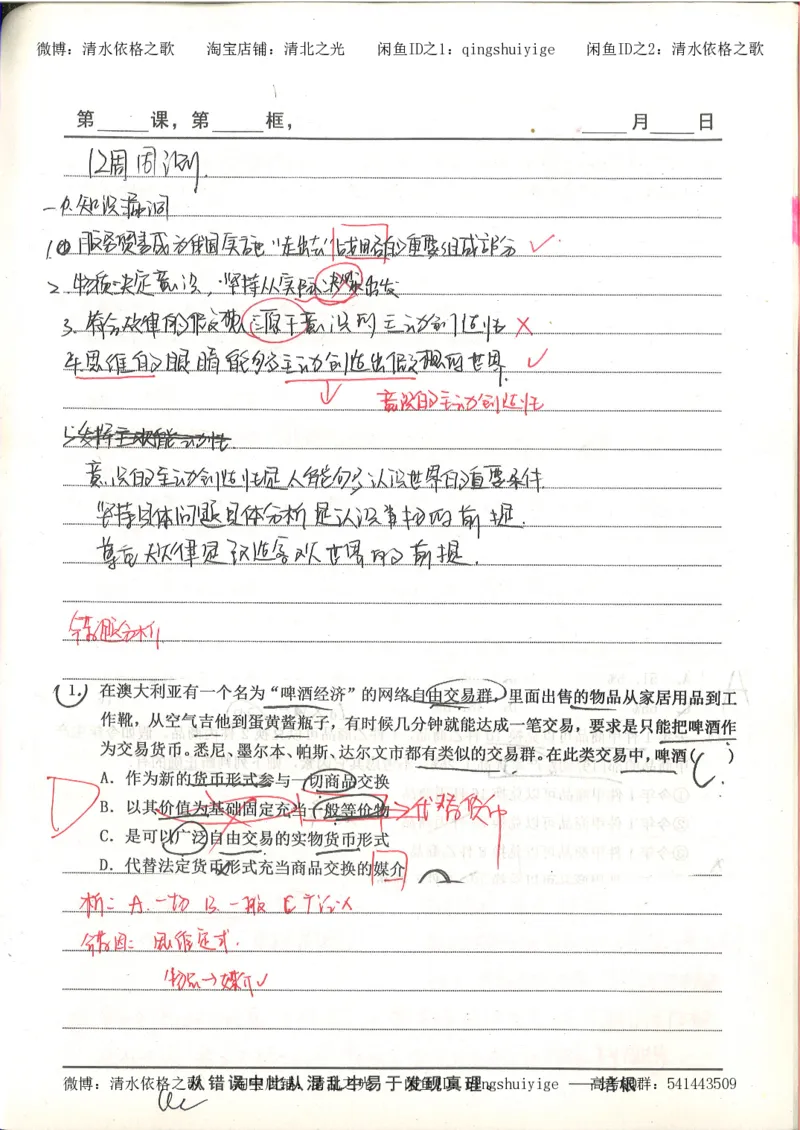 微博：清水依格之歌 淘宝店铺：清北之光 闲鱼ID之1：qingshuiyige 闲鱼ID之2：清水依格之歌
第 课，第 框， 月 日
12周周测
一、知识漏洞
1.① 服务贸易成为我国实施“走出去”战略的重要组成部分 ✓
2. 物质决定意识，坚持从实际决策出发
3. 符合规律的 源于意识的主动创造性 ×
4. 思维的眼睛能够主动创造出 的世界 ✓
意识的主动创造性
5.发挥主观能动性
意识的主动创造性是人能够认识世界的重要条件
坚持具体问题具体分析是认识事物的前提.
尊重 规律是改造客观世界的前提.
错题分析
1. 在澳大利亚有一个名为“啤酒经济”的网络自由交易群，里面出售的物品从家居用品到工
作靴，从空气吉他到蛋黄酱瓶子，有时候几分钟就能达成一笔交易，要求是只能把啤酒作
为交易货币。悉尼、墨尔本、帕斯、达尔文市都有类似的交易群。在此类交易中，啤酒（ ）
A. 作为新的货币形式参与一切商品交换
B. 以其价值为基础固定充当一般等价物 →代替货币
C. 是可以广泛自由交易的实物货币形式
D. 代替法定货币形式充当商品交换的媒介
D
析：A.一切 B.一般 C.广泛
错因：思维定式.
物品→媒介✓
微博：清水依格之歌 淘宝店铺：清北之光 闲鱼ID之1：qingshuiyige 高考 群：541443509
从错误中比从混乱中易于发现真理。 ——培根